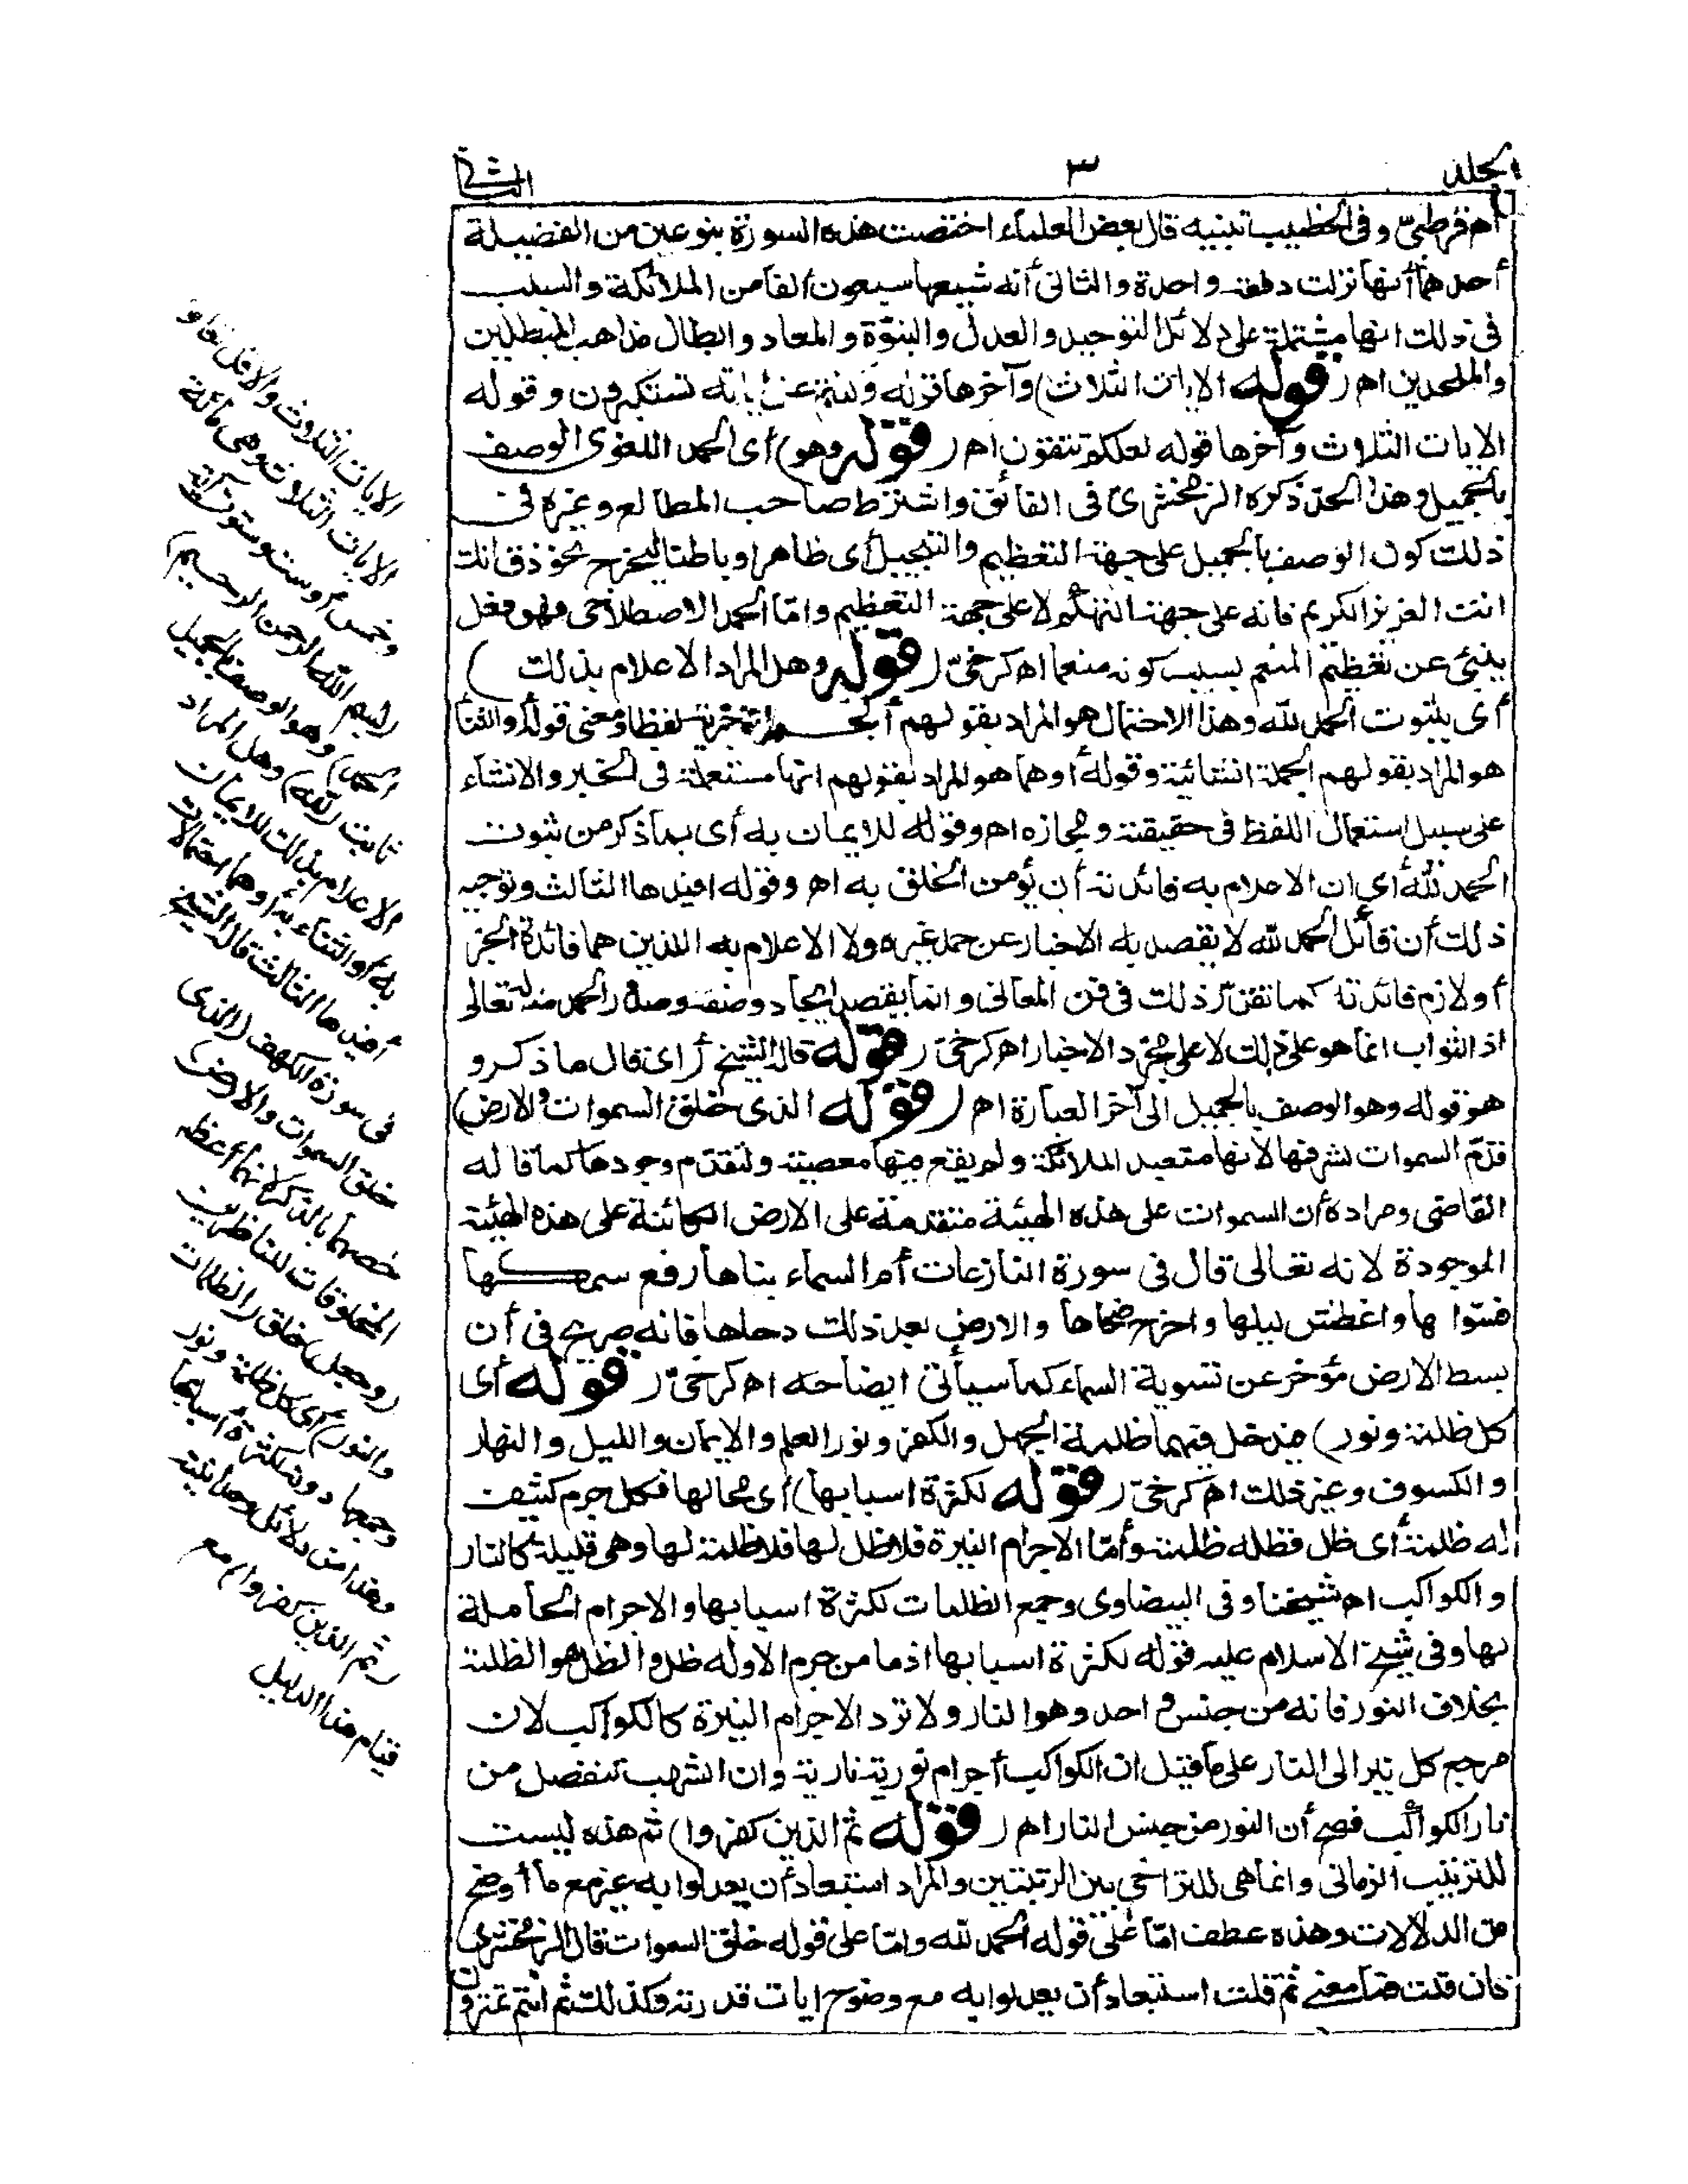 الجلد ٣ الثانى
اه قرطبىّ وفى الخطيب تنبيه قال بعض العلماء اختصت هذه السورة بنوعين من الفضيلة
أحدهما أنها نزلت دفعة واحدة والثانى أنه شيعها سبعون ألفا من الملائكة والسبب
فى ذلك انها مشتملة على دلائل التوحيد والعدل والنبوّة والمعاد وابطال مذاهب المبطلين
والملحدين اه (قوله الايات الثلاث) وآخرها قوله وكنتم عن اياته تستكبرون وقوله
الايات الثلاث وآخرها قوله لعلكم تتقون اه (قوله وهو) أى الحمد اللغوى الوصف
بالجميل وهذا الحدّ ذكره الزمخشرىّ فى الفائق واشترط صاحب المطالع وغيره فى
ذلك كون الوصف بالجميل على جهة التعظيم والتبجيل أى ظاهرا وباطنا ليخرج نحو ذق انك
انت العزيز الكريم فانه على جهة التهكم لا على جهة التعظيم وامّا الحمد الاصطلاحى فهو فعل
ينبئ عن تعظيم المنعم بسبب كونه منعما اه كرخىّ (قوله وهل المراد الاعلام بذلك)
أى بثبوت الحمد لله وهذا الاحتمال هو المراد بقولهم الجملة خبرية لفظا ومعنى قوله أو الثناء
هو المراد بقولهم الجملة انشائية وقوله أو هما هو المراد بقولهم انها مستعملة فى الخبر والانشاء
على سبيل استعمال اللفظ فى حقيقته ومجازه اه وقوله للايمان به أى بما ذكر من ثبوت
الحمد لله أى ان الاعلام به فائدته أن يؤمن الخلق به اه وقوله افيدها الثالث وتوجيه
ذلك أن قائل الحمد لله لا يقصد به الاخبار عن حمد غيره ولا الاعلام به اللذين هما فائدة الخبر
أو لازم فائدته كما تقرّر ذلك فى فن المعانى وانما يقصد ايجاد وصفه وصدور الحمد منه لله تعالى
اذ الثواب انما هو على ذلك لا على مجرّد الاخبار اه كرخىّ (قوله قال الشيخ) أى قال ما ذكر و
هو قوله وهو الوصف بالجميل الى آخر العبارة اه (قوله الذى خلق السموات والارض)
قدّم السموات لشرفها لانها متعبد الملائكة ولم يقع فيها معصية ولتقدّم وجودها كما قاله
القاضى ومراده أن السموات على هذه الهيئة متقدمة على الارض الكائنة على هذه الهيئة
الموجودة لانه تعالى قال فى سورة النازعات أم السماء بناها رفع سمكها
فسوّاها واغطش ليلها واخرج ضحاها والارض بعد ذلك دحاها فانه صريح فى أن
بسط الارض مؤخر عن تسوية السماء كما سيأتى ايضاحه اه كرخىّ (قوله أى
كل ظلمة ونور) فيدخل فيهما ظلمة الجهل والكفر ونور العلم والايمان والليل والنهار
والكسوف وغير ذلك اه كرخىّ (قوله لكثرة اسبابها) أى محالها فكل جرم كثيف
له ظلمة أى ظل فظله ظلمته وأمّا الاجرام النيرة فلا ظل لها فلا ظلمة لها وهى قليلة كالنار
والكواكب اه شيخنا وفى البيضاوى وجمع الظلمات لكثرة اسبابها والاجرام الحاملة
لها وفى شيخ الاسلام عليه قوله لكثرة اسبابها اذ ما من جرم الا وله ظل والظل هو الظلمة
بخلاف النور فانه من جنس واحد وهو النار ولا ترد الاجرام النيرة كالكواكب لان
مرجع كل نير الى النار على ما قيل ان الكواكب أجرام نورية نارية وان الشهب تنفصل من
نار الكواكب فصح أن النور من جنس النار اه (قوله ثم الذين كفروا) ثم هذه ليست
للترتيب الزمانى وانما هى للتراخى بين الرتبتين والمراد استبعاد أن يعدلوا به غيره مع ما أوضح
من الدلالات وهذه عطف امّا على قوله الحمد لله وامّا على قوله خلق السموات قال الزمخشرى
فان قلت فما معنى ثم قلت استبعاد أن يعدلوا به مع وضوح ايات قدرته وكذلك ثم انتم تمترون
الايات الثلاث والا قل تعالوا
الايات الثلاث وهى مائة
وخمس أو ست وستون آية
(بسم الله الرحمن الرحيم)
(الحمد) وهو الوصف بالجميل
ثابت (لله) وهل المراد
الاعلام بذلك للايمان
به أو الثناء به أو هما احتمالات
أفيدها الثالث قاله الشيخ
فى سورة الكهف (الذى
خلق السموات والارض)
خصهما بالذكر لانهما أعظم
المخلوقات للناظرين
(وجعل) خلق (الظلمات
والنور) أى كل ظلمة ونور
وجمعها دونه لكثرة أسبابها
وهذا من دلائل وحدانيته
(ثم الذين كفروا) مع
قيام هذا الدليل